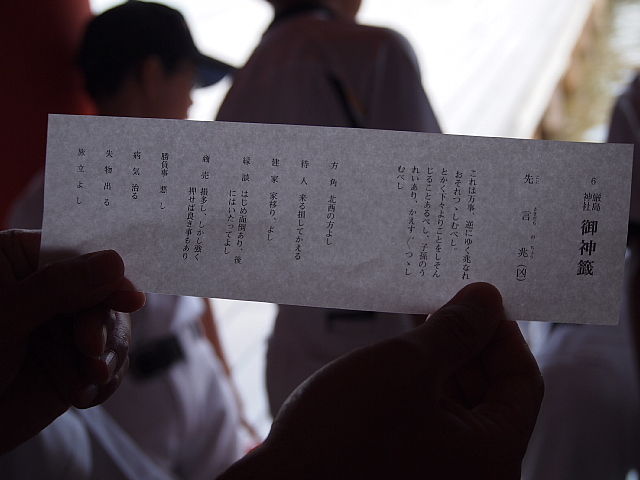 6 厳島神社 御神籤
先言兆(凶)
これは万事、逆にゆく兆なれ
おそれつゝしむべし。
とかく下々よりことをしそん
じることあるべし、子孫のう
れいあり、かえす〴〵つゝし
むべし
方角 北西の方よし
待人 来る損じてかえる
建家 家移り、よし
縁談 はじめ面倒あり、後
にはいたってよし
商売 損多し、しかし強く
押せば良き事もあり
勝負事 悪し
病気 治る
失物 出る
旅立 よし